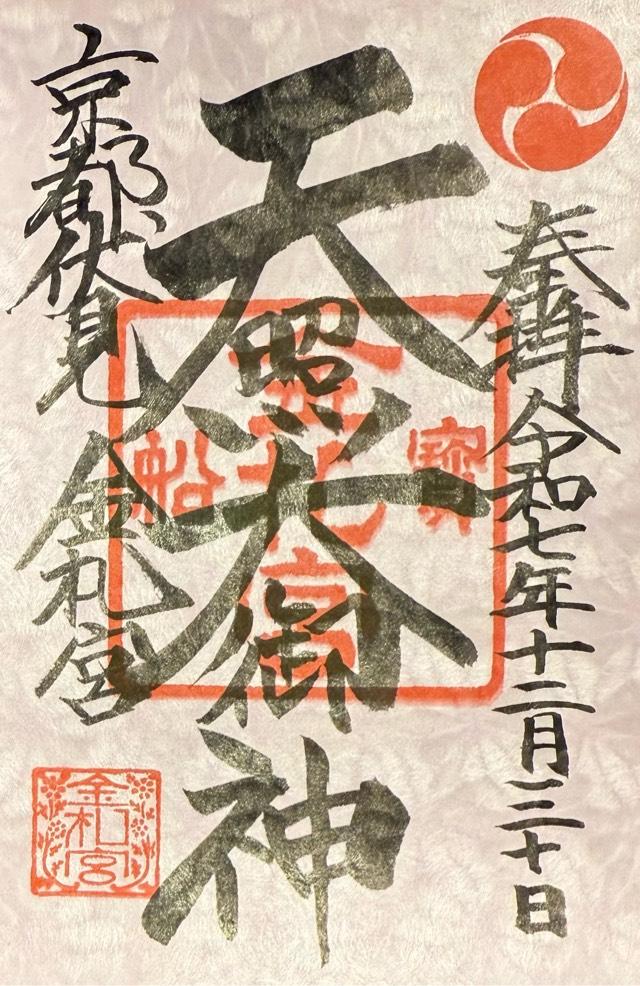 奉拝
令和七年十二月三十日
天照大御神
寶
金札宮
船
京都伏見
金札宮
金札宮